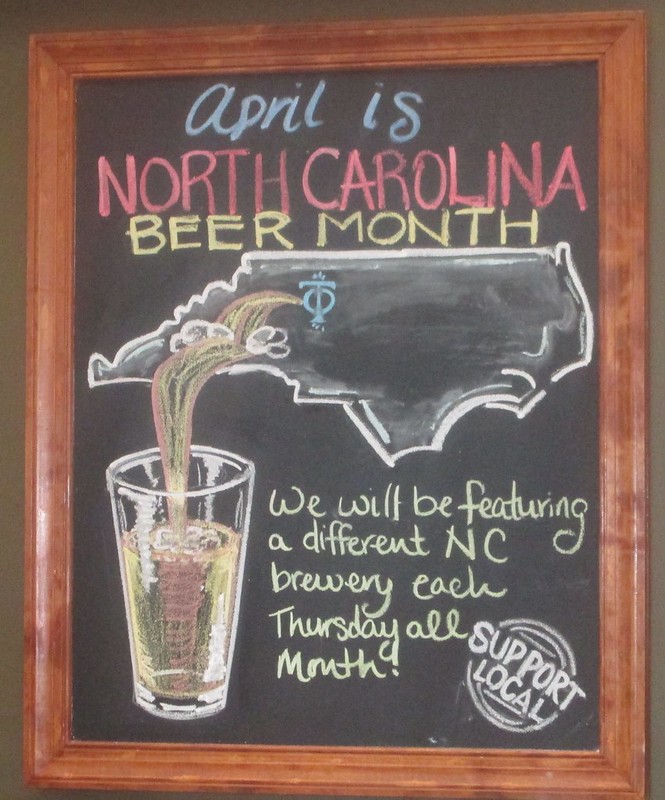 April is
NORTH CAROLINA
BEER MONTH
We will be featuring
a different NC
brewery each
Thursday all
Month!
SUPPORT
LOCAL